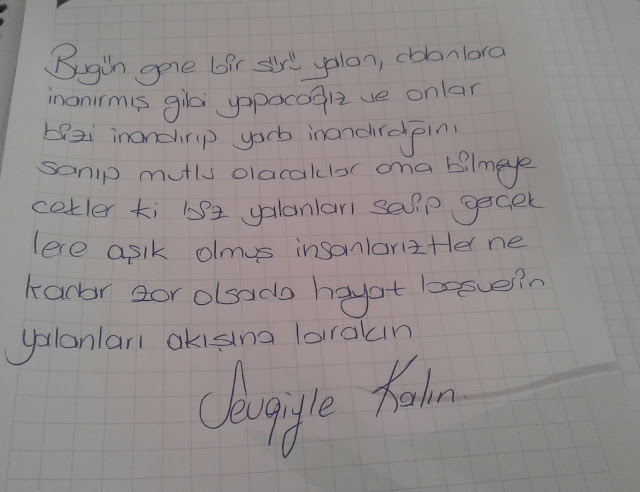 Bugün gene bir sürü yalan, dolanlara
inanırmış gibi yapacağız ve onlar
bizi inandırıp yada inandırdığını
sanıp mutlu olacaklar ama bilmeye
cekler ki biz yalanları sevip gerçek
lere aşık olmuş insanlarız Her ne
kadar zor olsada hayat boşverin
yalanları akışına bırakın
Sevgiyle Kalın.